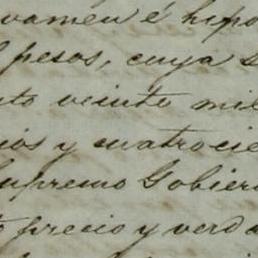 vamen é hipo
pesos, cuya s
nto veinte mil
ios y cuatrocie
upremo Gobier
precio y verda